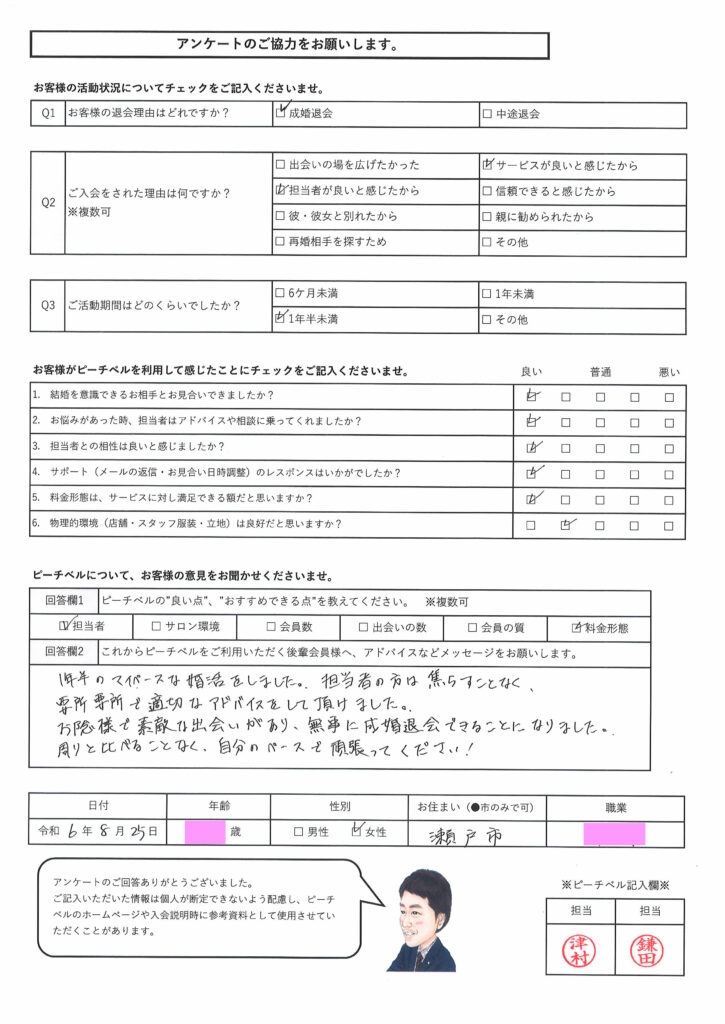 アンケートのご協力をお願いします。
お客様の活動状況についてチェックをご記入くださいませ。
Q1 お客様の退会理由はどれですか？ ☑成婚退会 □中途退会
□出会いの場を広げたかった ☑サービスが良いと感じたから
Q2 ご入会をされた理由は何ですか？ ☑担当者が良いと感じたから □信頼できると感じたから
※複数可 □彼・彼女と別れたから □親に勧められたから
□再婚相手を探すため □その他
Q3 ご活動期間はどのくらいでしたか？ □6ケ月未満 □1年未満
☑1年半未満 □その他
お客様がピーチベルを利用して感じたことにチェックをご記入くださいませ。 良い 普通 悪い
1. 結婚を意識できるお相手とお見合いできましたか？ ☑ □ □ □ □
2. お悩みがあった時、担当者はアドバイスや相談に乗ってくれましたか？ ☑ □ □ □ □
3. 担当者との相性は良いと感じましたか？ ☑ □ □ □ □
4. サポート（メールの返信・お見合い日時調整）のレスポンスはいかがでしたか？ ☑ □ □ □ □
5. 料金形態は、サービスに対し満足できる額だと思いますか？ ☑ □ □ □ □
6. 物理的環境（店舗・スタッフ服装・立地）は良好だと思いますか？ □ ☑ □ □ □
ピーチベルについて、お客様の意見をお聞かせくださいませ。
回答欄1 ピーチベルの"良い点"、"おすすめできる点"を教えてください。 ※複数可
☑担当者 □サロン環境 □会員数 □出会いの数 □会員の質 ☑料金形態
回答欄2 これからピーチベルをご利用いただく後輩会員様へ、アドバイスなどメッセージをお願いします。
1年半のマイペースな婚活をしました。担当者の方は焦らすことなく、
要所要所で適切なアドバイスをして頂けました。
お陰様で素敵な出会いがあり、無事に成婚退会できることになりました。
周りと比べることなく、自分のペースで頑張ってください！
日付 年齢 性別 お住まい（●市のみで可） 職業
令和6年8月25日 歳 □男性 ☑女性 瀬戸市
アンケートのご回答ありがとうございました。
ご記入いただいた情報は個人が断定できないよう配慮し、ピーチ
ベルのホームページや入会説明時に参考資料として使用させてい
ただくことがあります。
※ピーチベル記入欄※
担当 担当
津村 鎌田